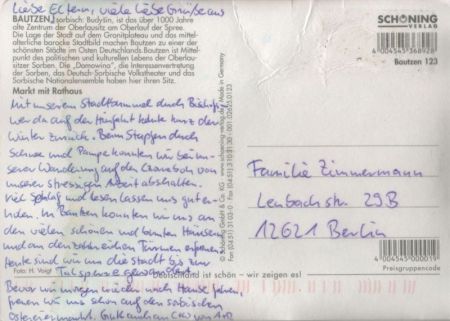 Liebe Eltern, viele liebe Grüße aus
BAUTZEN, sorbisch: Budyšin, ist das über 1000 Jahre
alte Zentrum der Oberlausitz am Oberlauf der Spree.
Die Lage der Stadt auf dem Granitplateau und das mittel-
alterliche barocke Stadtbild machen Bautzen zu einer der
schönsten Städte im Osten Deutschlands. Bautzen ist Mittel-
punkt des politischen und kulturellen Lebens der Oberlau-
sitzer Sorben. Die "Domowina", die Interessenvertretung
der Sorben, das Deutsch-Sorbische Volkstheater und das
Sorbische Nationalensemble haben hier ihren Sitz.
Markt mit Rathaus
Mit unserem Stadtbummel durch
auf der Hinfahrt kehrte kurz der
Winter zurück. Beim Stapfen durch
Schnee und Pampe konnten wir bei un-
serer Wanderung auf den von
unserem stressigen Arbeit abschalten.
Viel Schlaf und lesen lassen uns gut er-
holen. In Bautzen konnten wir uns an
den vielen schönen und bunten Häusern
und an den zahlreichen Türmen erfreuen.
Heute sind wir um die Stadt bis zur
Talsperre gewandert.
Bevor wir morgen wieder nach Hause fahren,
freuen wir uns schon auf den sorbischen
Ostereiermarkt.
Foto: H. Voigt
© Schöning GmbH & Co. KG
www.schoening-verlag.de
Made in Germany
SCHÖNING
VERLAG
4 004545 368928
Bautzen 123
Familie Zimmermann
Lenbachstr. 29B
12621 Berlin
4 004545 000019
Preisgruppencode
Deutschland ist schön – wir zeigen es!